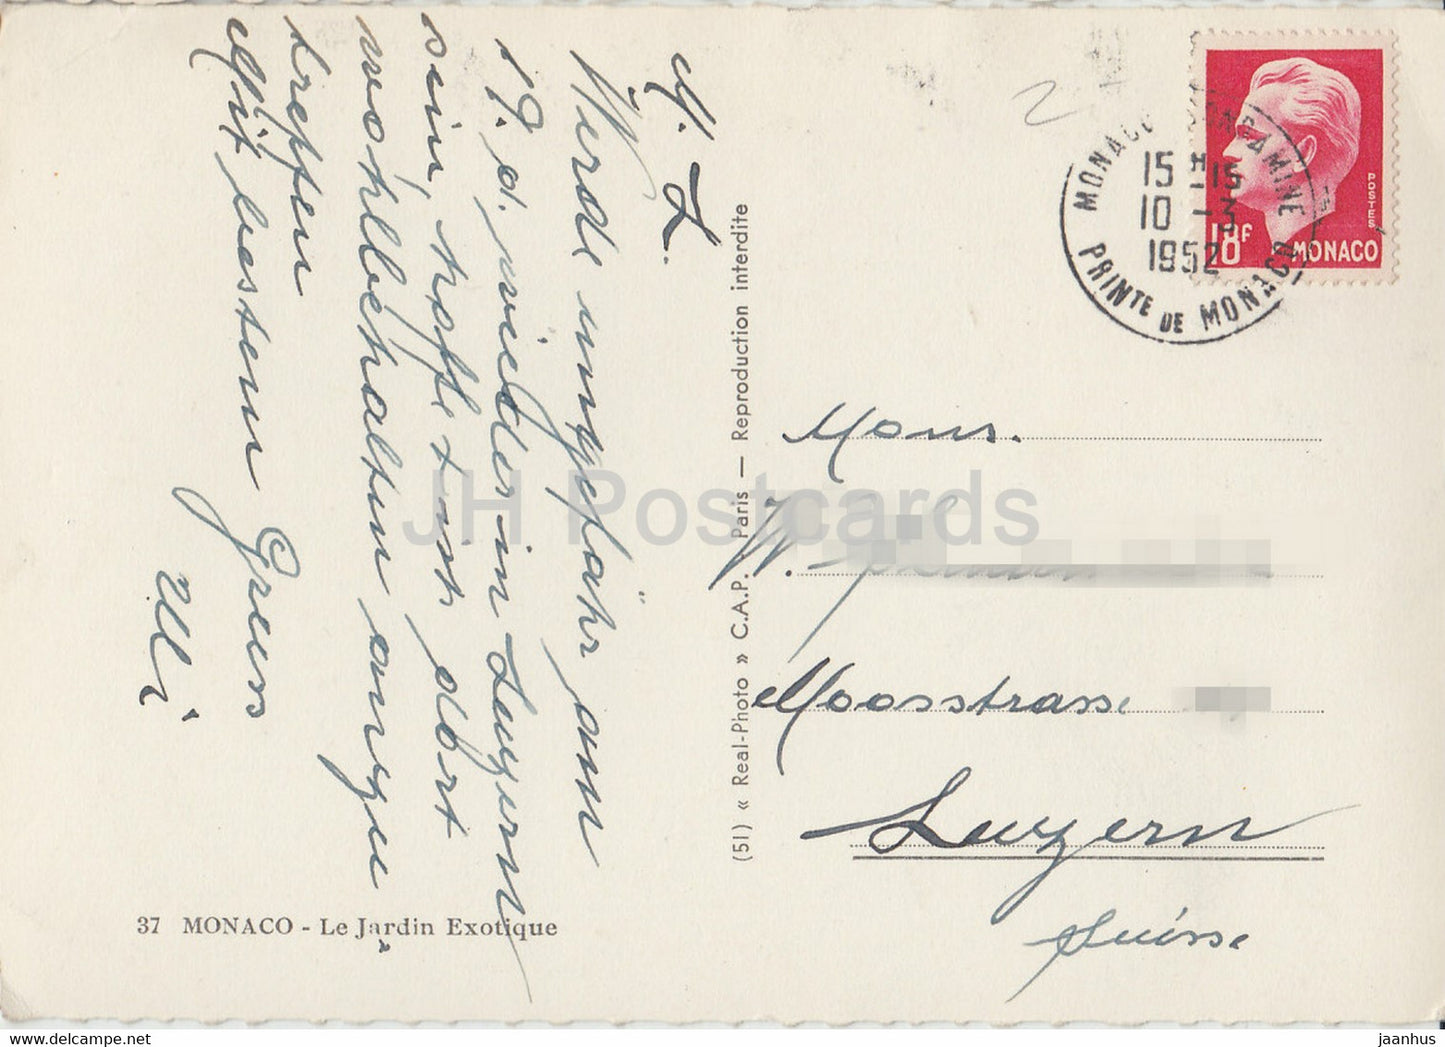 M. L.
Werde ungefähr am
19. d. wieder in Luzern
sein, hoffe Dich dort
wohlbehalten anzu
treffen
Mit bestem Gruss
Ulli
37 MONACO - Le Jardin Exotique
(51) « Real-Photo » C.A.P. - Paris — Reproduction interdite
MONACO CONDAMINE
15 H 15
10 - 3
1952
PRINTÉ DE MONACO
POSTES
18F MONACO
Mons.
W.
Moosstrasse
Luzern
Suisse
JH Postcards
www.hippostcard.com
jaanhus